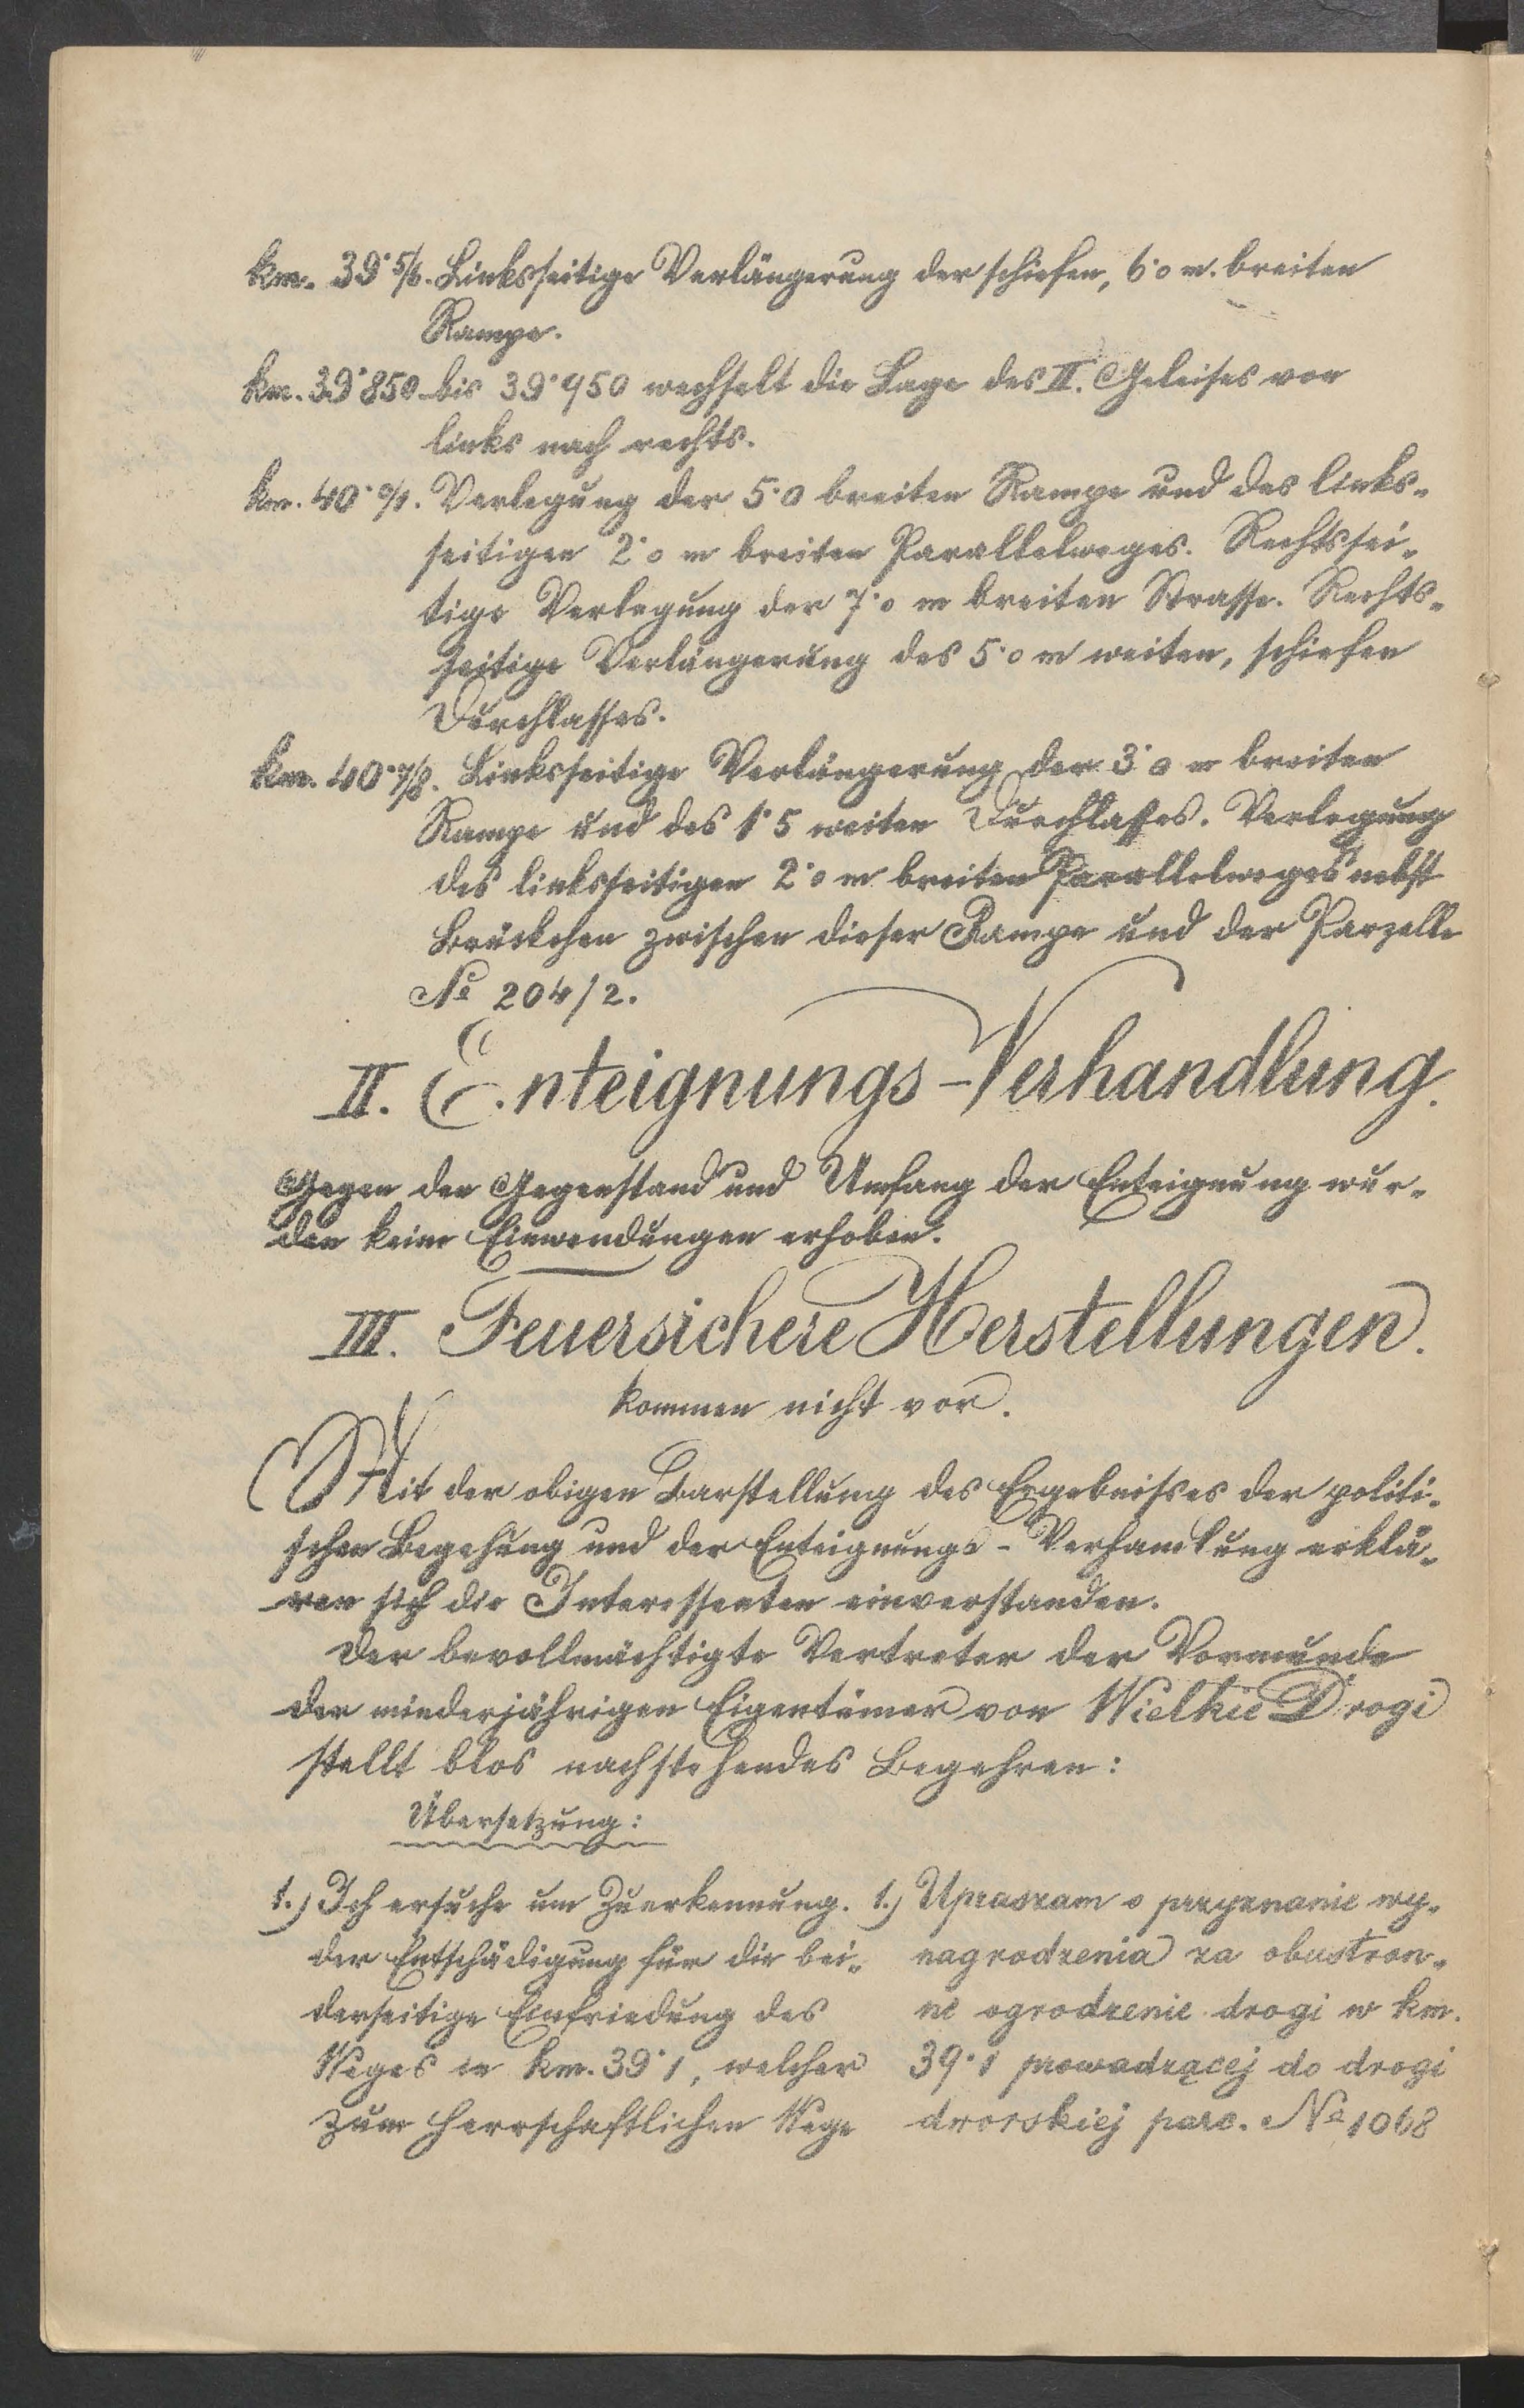 km. 39·5/6. Linksseitige Verlängerung der schiefen, 6·0 m. breiten
Rampe.
km. 39·850 bis 39·950 wechselt die Lage des II. Geleises von
links nach rechts.
km. 40·0/1. Verlegung der 5·0 breiten Rampe und des links-
seitigen 2·0 m breiten Parallelweges. Rechtssei-
tige Verlegung der 7·0 m breiten Strasse. Rechts-
seitige Verlängerung des 5·0 m weiten, schiefen
Durchlasses.
km. 40·7/8. Linksseitige Verlängerung der 3·0 m breiten
Rampe und des 1·5 weiten Durchlasses. Verlegung
des linksseitigen 2·0 m breiten Parallelweges nebst
Brückchen zwischen dieser Rampe und der Parzelle
No 204/2.
II. Enteignungs-Verhandlung.
Gegen den Gegenstand und Umfang der Enteignung wur-
den keine Einwendungen erhoben.
III. Feuersichere Herstellungen.
kommen nicht vor.
Mit der obigen Darstellung des Ergebnisses der politi-
schen Begehung und der Enteignungs-Verhandlung erklä-
ren sich die Interessenten einverstanden.
Der bevollmächtigte Vertreter der Vormunde
der minderjährigen Eigentümer von Wielkie Drogi
stellt blos nachstehendes Begehren:
Übersetzung:
1.) Ich ersuche um Zuerkennung.
der Entschädigung für die bei-
derseitige Einfriedung des
Weges in km. 39·1, welcher
zum herrschaftlichen Wege
1.) Upraszam o przyznanie wy-
nagrodzenia za obustron-
ne ogrodzenie drogi w km.
39·1 prowadzącej do drogi
dworskiej parc. No 1068